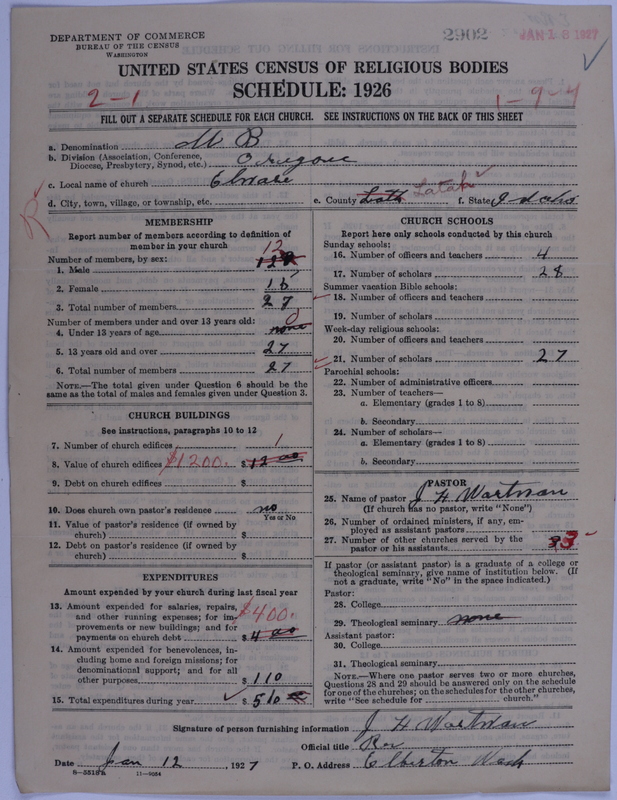 DEPARTMENT OF COMMERCE
BUREAU OF THE CENSUS
WASHINGTON
2902
JAN 18 1927
UNITED STATES CENSUS OF RELIGIOUS BODIES
SCHEDULE: 1926
2-1
1-9-4
FILL OUT A SEPARATE SCHEDULE FOR EACH CHURCH. SEE INSTRUCTIONS ON THE BACK OF THIS SHEET
a. Denomination M B
b. Division (Association, Conference,
Diocese, Presbytery, Synod, etc.)
c. Local name of church
d. City, town, village, or township, etc.
e. County Latah
f. State Idaho
MEMBERSHIP
Report number of members according to definition of
member in your church
Number of members, by sex:
1. Male 12
2. Female 15
3. Total number of members 27
Number of members under and over 13 years old:
4. Under 13 years of age none 0
5. 13 years old and over 27
6. Total number of members 27
NOTE.—The total given under Question 6 should be the
same as the total of males and females given under Question 3.
CHURCH BUILDINGS
See instructions, paragraphs 10 to 12
7. Number of church edifices 1
8. Value of church edifices $1200. $ 12 00
9. Debt on church edifices $
10. Does church own pastor's residence no
Yes or No
11. Value of pastor's residence (if owned by
church) $
12. Debt on pastor's residence (if owned by
church) $
EXPENDITURES
Amount expended by your church during last fiscal year
13. Amount expended for salaries, repairs,
and other running expenses; for im-
provements or new buildings; and for
payments on church debt $400. $ 4 00
14. Amount expended for benevolences, in-
cluding home and foreign missions; for
denominational support; and for all
other purposes $ 110
15. Total expenditures during year $ 510
CHURCH SCHOOLS
Report here only schools conducted by this church
Sunday schools:
16. Number of officers and teachers 4
17. Number of scholars 28
Summer vacation Bible schools:
18. Number of officers and teachers
19. Number of scholars
Week-day religious schools:
20. Number of officers and teachers
21. Number of scholars 27
Parochial schools:
22. Number of administrative officers
23. Number of teachers—
a. Elementary (grades 1 to 8)
b. Secondary
24. Number of scholars—
a. Elementary (grades 1 to 8)
b. Secondary
PASTOR
25. Name of pastor J H Wartman
(If church has no pastor, write "None")
26. Number of ordained ministers, if any, em-
ployed as assistant pastors
27. Number of other churches served by the
pastor or his assistants 3
If pastor (or assistant pastor) is a graduate of a college or
theological seminary, give name of institution below. (If
not a graduate, write "No" in the space indicated.)
Pastor:
28. College
29. Theological seminary none
Assistant pastor:
30. College
31. Theological seminary
NOTE.—Where one pastor serves two or more churches,
Questions 28 and 29 should be answered only on the schedule
for one of the churches; on the schedules for the other churches,
write "See schedule for church."
Signature of person furnishing information J H Wartman
Official title Rev
Date Jan 12, 1927
P. O. Address Elberton Wash
8-5518a 11-9054